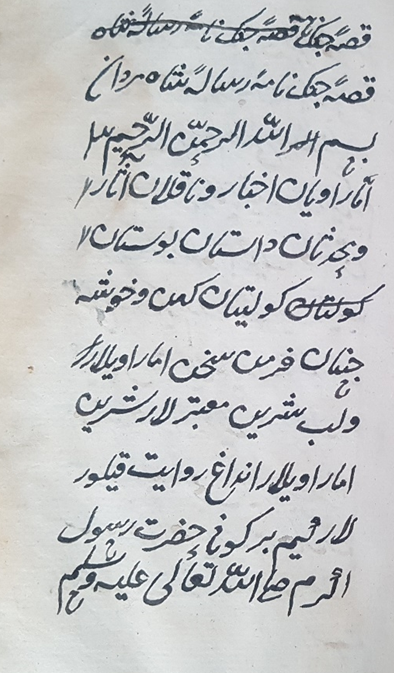 قصهٔ جنک نامه قصهٔ جنک نامهٔ رسالهٔ شاه
قصهٔ جنک نامهٔ رسالهٔ شاه مردان
بسم الله الرحمن الرحیم
اما راویان اخبار و ناقلان آثار
و محدثان داستان بوستان
کولیتان کهن و خوشه
چنان خرمن سخن اما راویلار
و لب شیرین معتبرلار شیرین
اما راویلار انداغ روایت قیلور
لار کیم بر کون حضرت رسول
اکرم صلی الله تعالی علیه وسلم